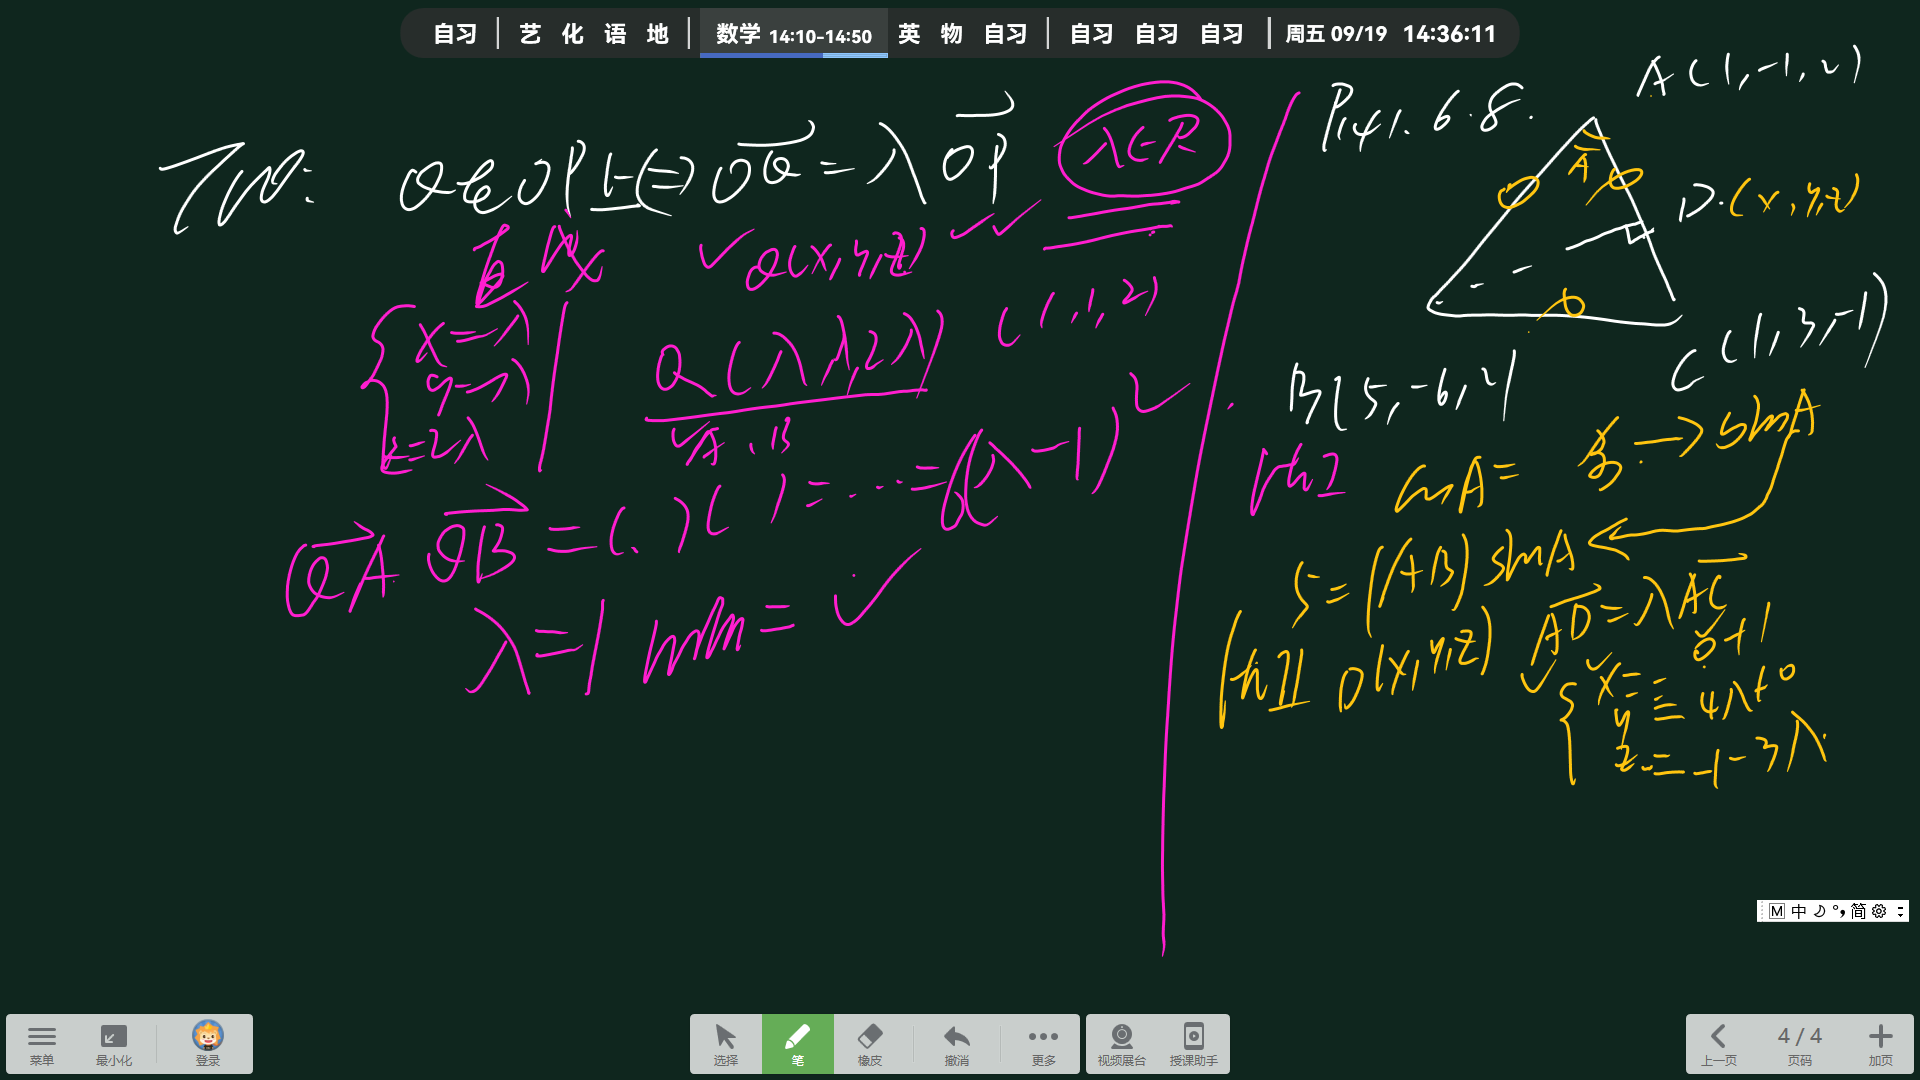 自习 | 艺 化 语 地 | 数学 14:10-14:50 英 物 自习 | 自习 自习 自习 | 周五 09/19 14:36:11
Q在OP上⇔OQ=λOP λ∈R
直线
Q(x,y,z)
x=λ
y=λ
z=2λ
Q(λ,λ,2λ) (1,1,2)
A,B
QA QB=(.)( )=...=6(λ-1)²
λ=1 min=
P141.6.8.
A(1,-1,2)
A
D.(x,y,z)
B(5,-6,2)
C(1,3,-1)
法I cosA= →sinA
S=(AB)sinA
法II D(x,y,z) AD=λAC
0+1
x=
y= 4λ+0
z= -1-3λ
M 中 简
菜单 最小化 登录 选择 笔 橡皮 撤消 更多 视频展台 授课助手 上一页 4 / 4 页码 加页